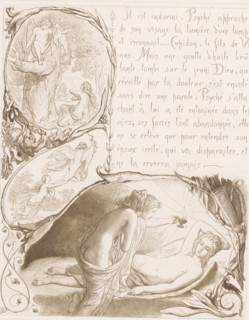 Il est endormi. Psyché approche
de son visage la lumière d'une lampe
et reconnaît... Cupidon, le fils de V
énus. Mais une goutte d'huile brû
lante tombe sur le jeune Dieu, qui
réveillé par la douleur, s'est envolé
sans dire une parole. Psyché s'atta
chant à lui a été entraînée dans les
airs, ses forces l'ont abandonnée, elle
ne se relève que pour entendre son
époux irrité, qui va disparaître, et
ne la reverra jamais